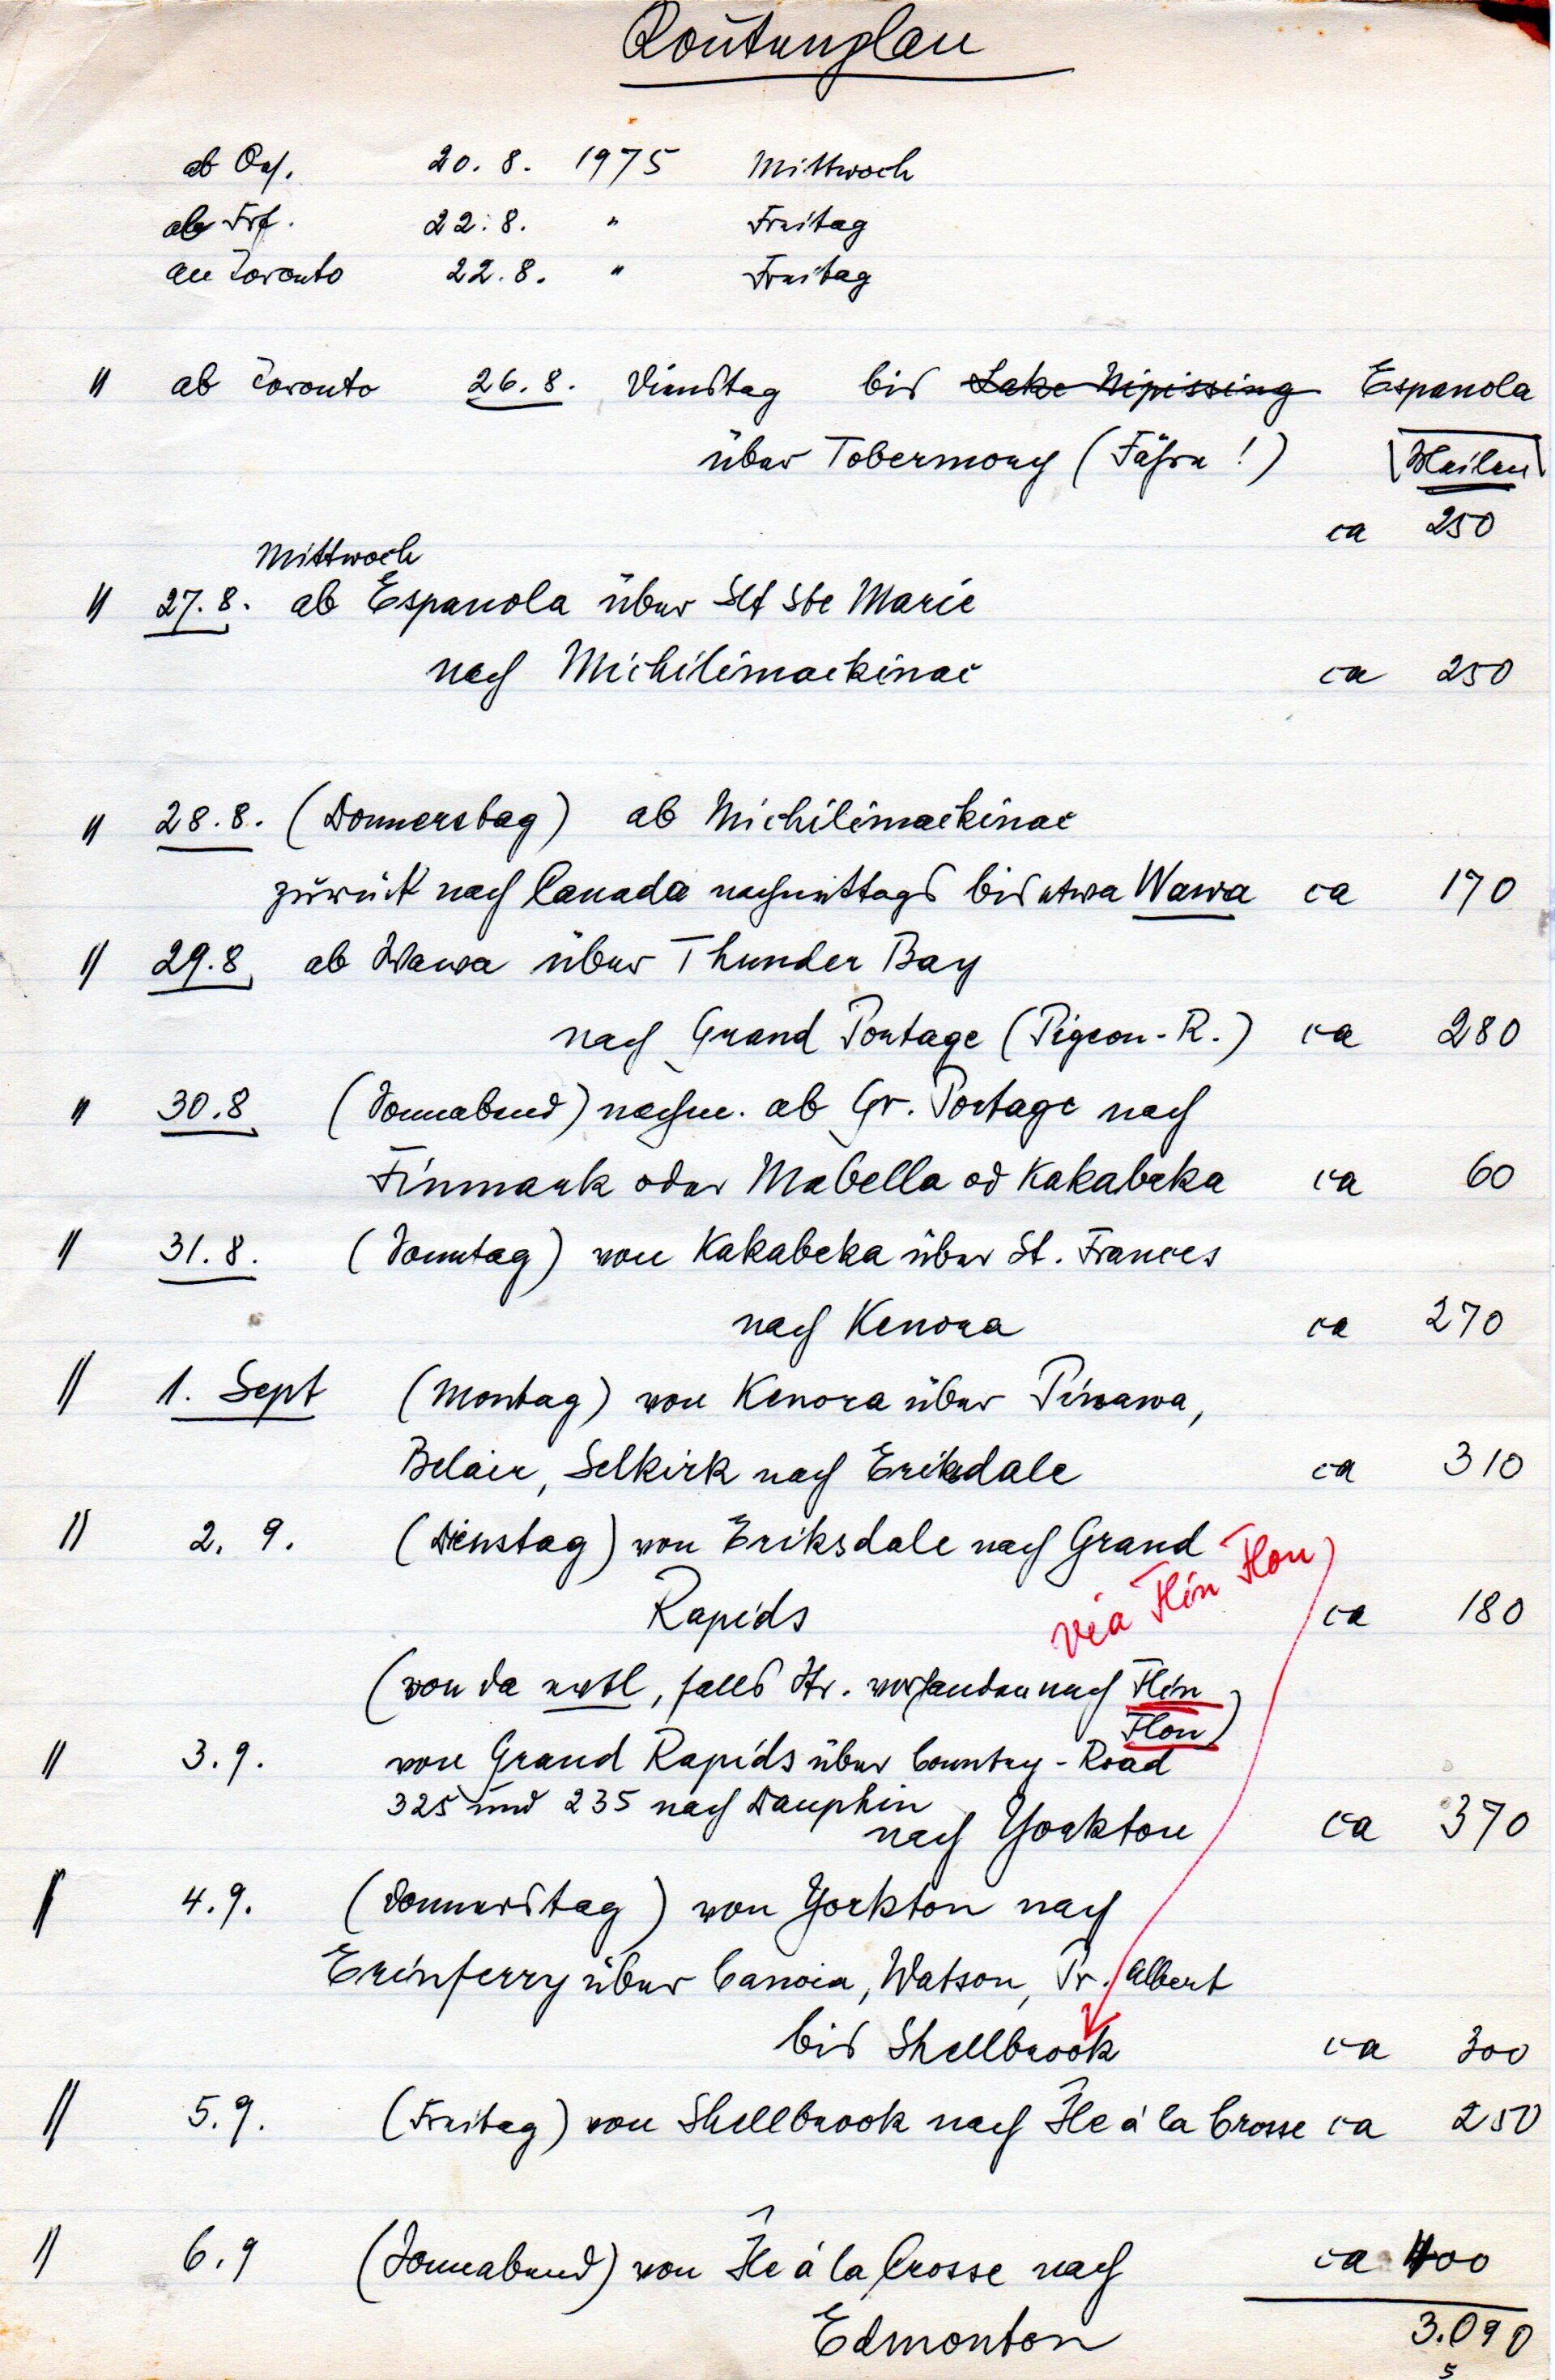 Routenplan
ab Oy. 20. 8. 1975 Mittwoch
ab Frf. 22. 8. " Freitag
an Toronto 22. 8. " Freitag
" ab Toronto 26. 8. Dienstag bis Lake Nipissing Espanola
über Tobermory (Fähre !) Meilen
ca 250
Mittwoch
" 27. 8. ab Espanola über Slt Ste Marie
nach Michilimackinac ca 250
" 28. 8. (Donnerstag) ab Michilimackinac
zurück nach Canada nachmittags bis etwa Wawa ca 170
" 29. 8. ab Wawa über Thunder Bay
nach Grand Portage (Pigeon-R.) ca 280
" 30. 8 (Sonnabend) nachm. ab Gr. Portage nach
Finmark oder Mabella od Kakabeka ca 60
" 31. 8. (Sonntag) von Kakabeka über St. Frances
nach Kenora ca 270
" 1. Sept (Montag) von Kenora über Pinawa,
Belair, Selkirk nach Eriksdale ca 310
" 2. 9. (Dienstag) von Eriksdale nach Grand
via Flin Flon
Rapids ca 180
(von da evtl, falls Str. vorhanden nach Flin
Flon)
" 3. 9. von Grand Rapids über Country-Road
325 und 235 nach Dauphin
nach Yorkton ca 370
" 4. 9. (Donnerstag) von Yorkton nach
Erinferry über Canora, Watson, Pr. Albert
bis Shellbrook ca 300
" 5. 9. (Freitag) von Shellbrook nach Île à la Crosse ca 250
" 6. 9 (Sonnabend) von Île à la Crosse nach ca 400
Edmonton 3.090
5